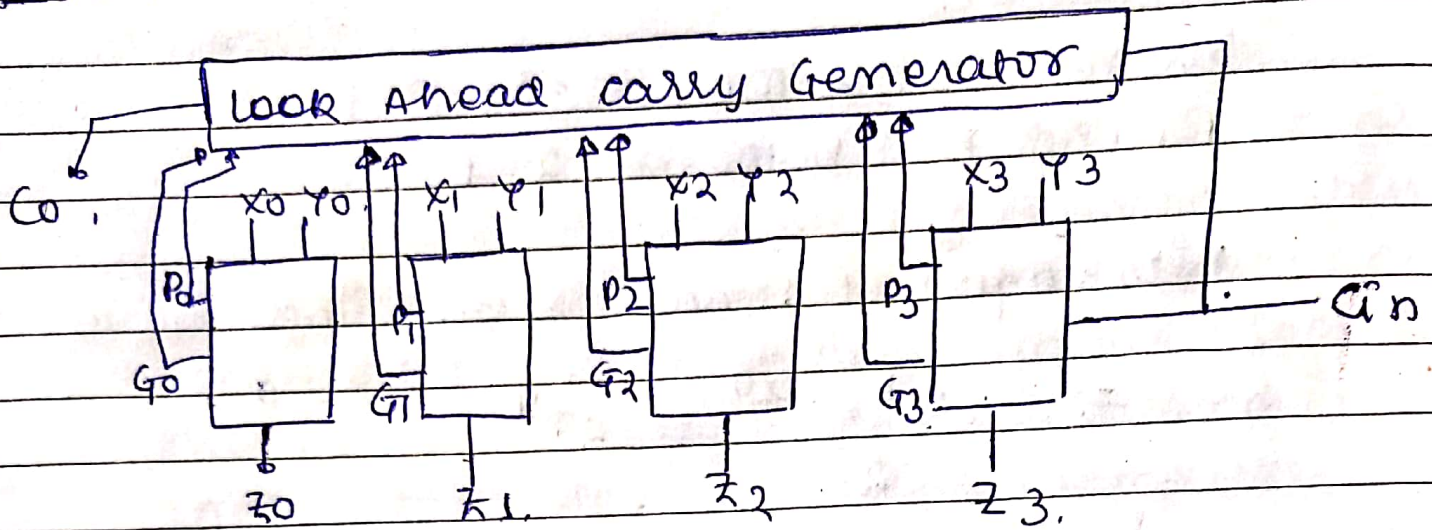 Look Ahead carry Generator
Co.
X0 Y0 X1 Y1 X2 Y2 X3 Y3
P0 P1 P2 P3 Cin
G0 G1 G2 G3
Z0 Z1. Z2 Z3.